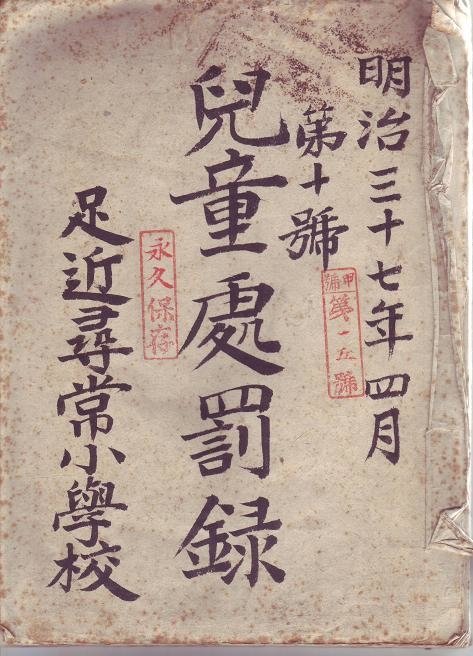 明治三十七年四月
第十號
甲號
第一五號
兒童處罰録
永久保存
足近尋常小學校